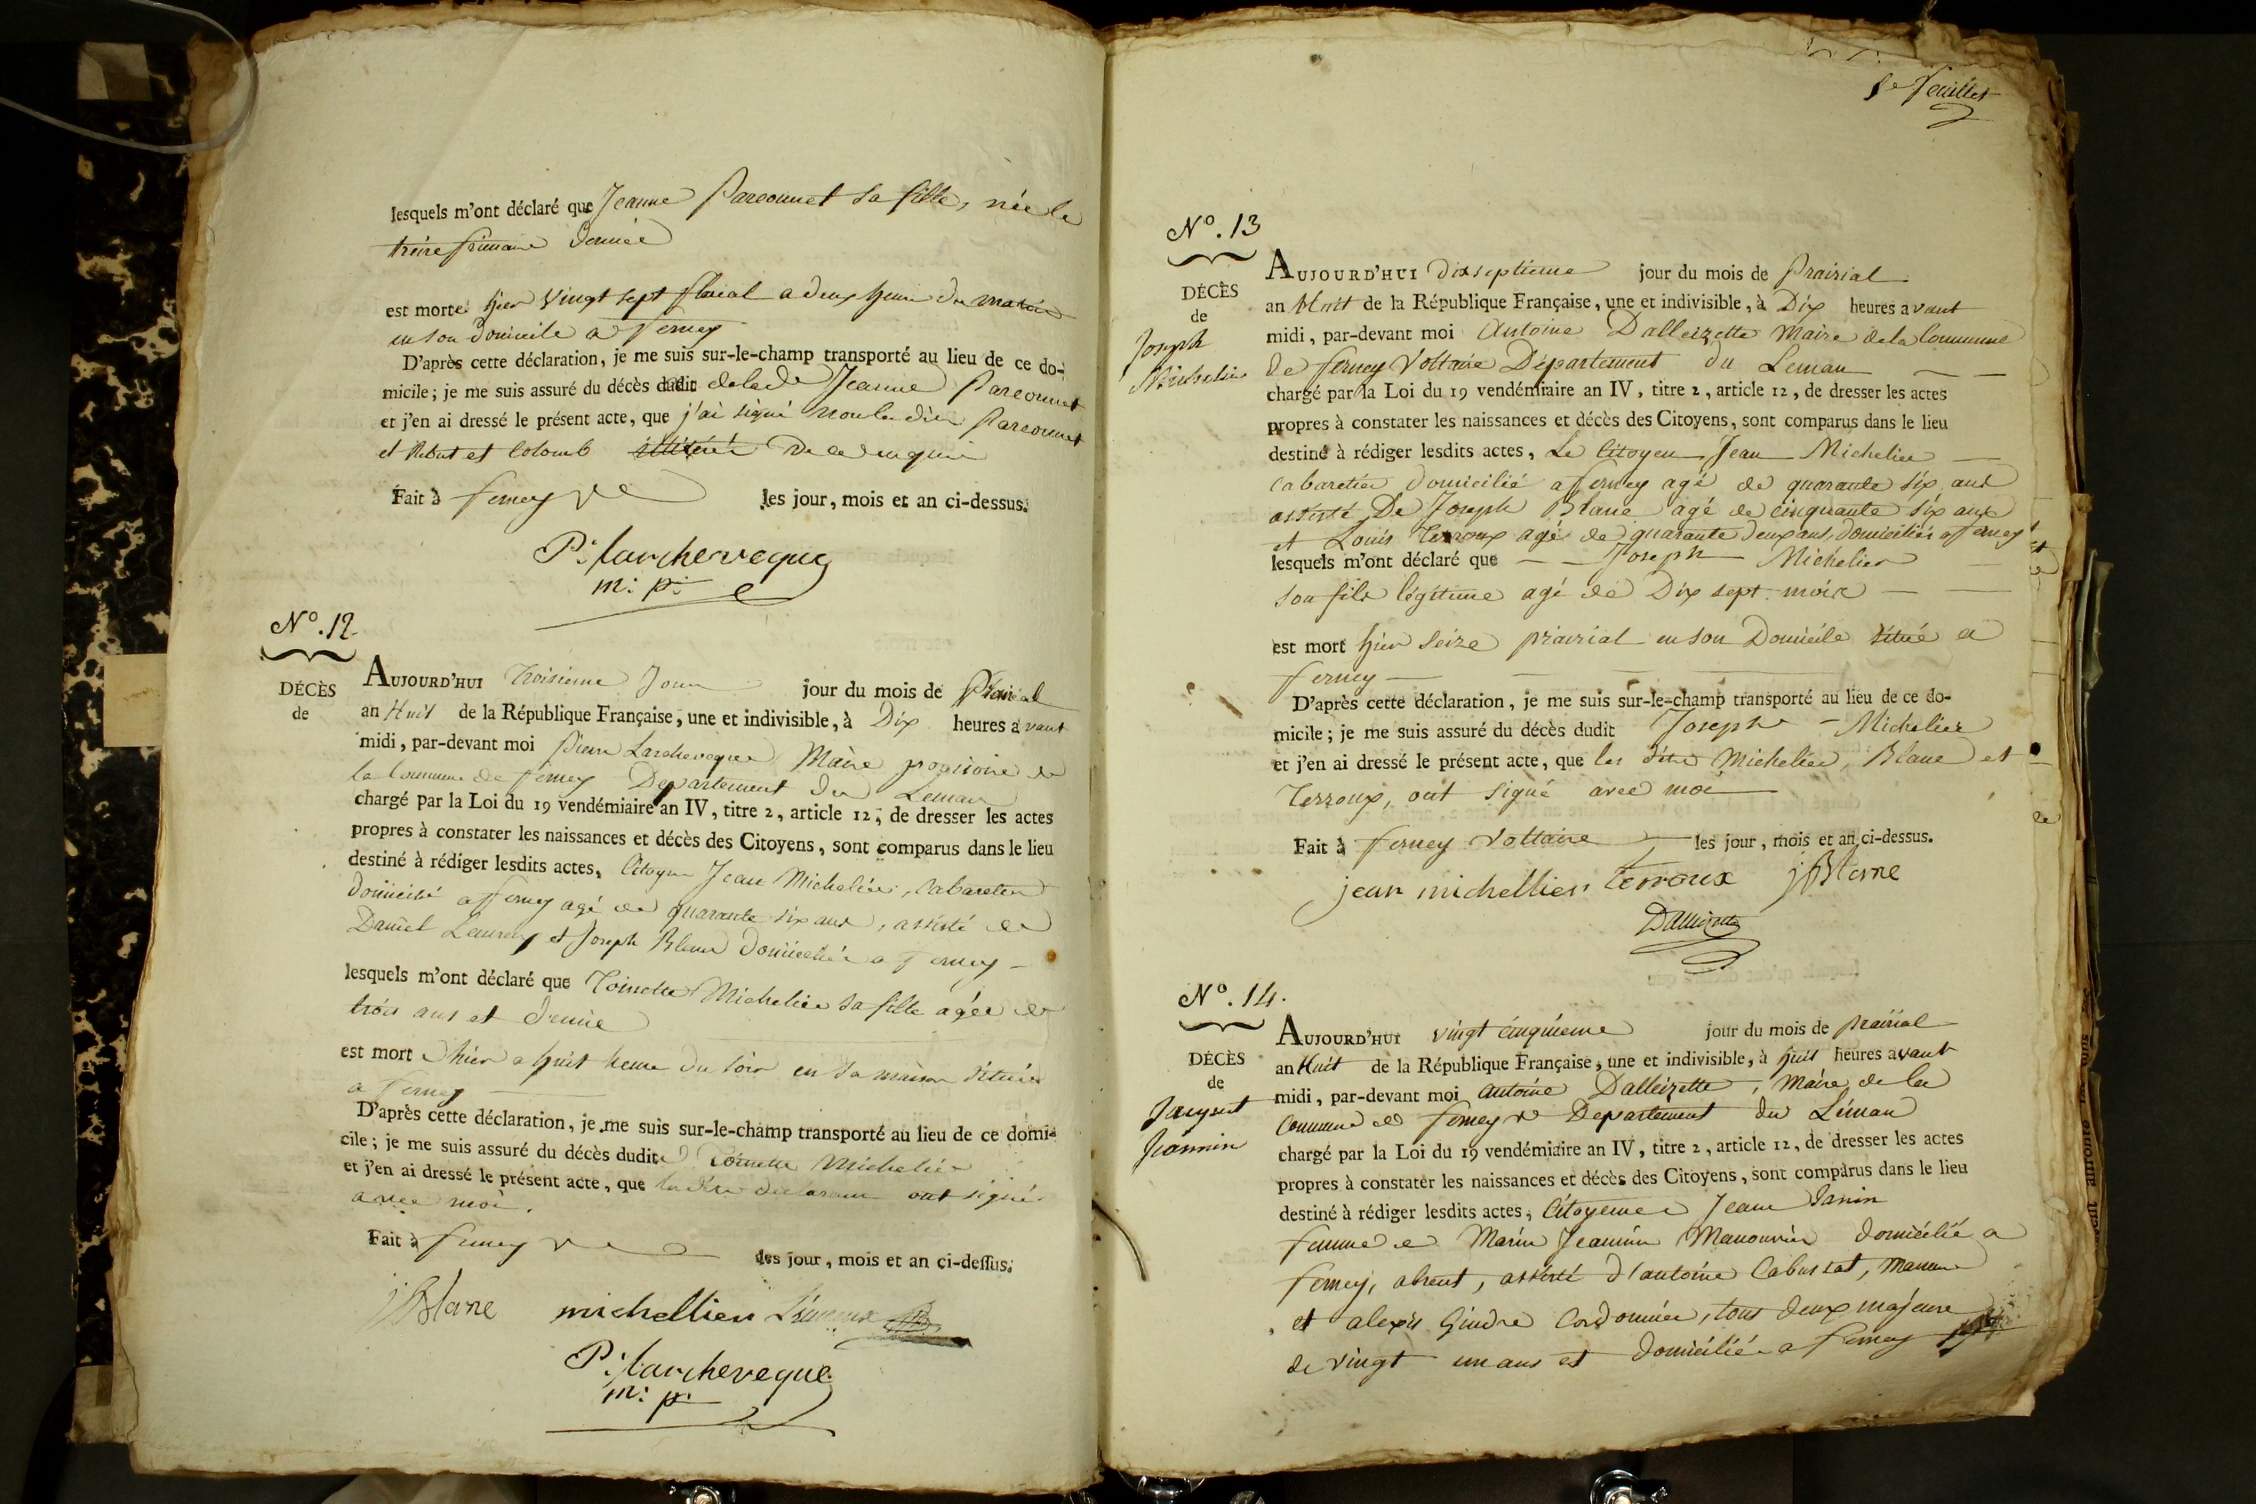 lesquels m'ont déclaré que Jeanne Parcounet sa fille, née le
treize frimaire dernier
est morte hier vingt sept floréal a deux heure du matin
en son domicile a Ferney
D'après cette déclaration, je me suis sur-le-champ transporté au lieu de ce do-
micile; je me suis assuré du décès dudit de lade Jeanne Parcounet
et j'en ai dressé le présent acte, que j'ai signé non le dit Parcounet
et Rebut et Colomb de ce enquis
Fait à ferney Ve les jour, mois et an ci-dessus.
P: larcheveque
m: p:
N°. 12.
DÉCÈS
de
AUJOURD'HUI troisieme Jour jour du mois de Prairial
an Huit de la République Française, une et indivisible, à Dix heures avant
midi, par-devant moi Pierre Larcheveque Maire provisoire de
la Commune de ferney Departement du Leman
chargé par la Loi du 19 vendémiaire an IV, titre 2, article 12, de dresser les actes
propres à constater les naissances et décès des Citoyens, sont comparus dans le lieu
destiné à rédiger lesdits actes, Citoyen Jean Michelier, Cabaretier
domicilié a ferney agé de quarante six ans, assisté de
Daniel et Joseph Blanc domiciliés a Ferney
lesquels m'ont déclaré que Toinette Michelier sa fille agée de
trois ans et demie
est morte hier a huit heure du soir en sa maison située
a ferney
D'après cette déclaration, je me suis sur-le-champ transporté au lieu de ce domi-
cile; je me suis assuré du décès dudite Toinette Michelier
et j'en ai dressé le présent acte, que ont signé
avec moi.
Fait à ferney Ve les jour, mois et an ci-dessus.
j Blanc michellier
P: larcheveque
m: p:
8e feuillet
N°. 13
DÉCÈS
de
Joseph
Michelier
AUJOURD'HUI dixseptieme jour du mois de Prairial
an Huit de la République Française, une et indivisible, à Dix heures avant
midi, par-devant moi Antoine Dalleizette Maire de la Commune
de ferney Voltaire Département du Leman
chargé par la Loi du 19 vendémiaire an IV, titre 2, article 12, de dresser les actes
propres à constater les naissances et décès des Citoyens, sont comparus dans le lieu
destiné à rédiger lesdits actes, Le Citoyen Jean Michelier
Cabaretier domicilié a ferney agé de quarante six ans
assisté De Joseph Blanc agé de cinquante six ans
et Louis Terroux agé de quarante deux ans, domiciliés a ferney
lesquels m'ont déclaré que Joseph Michelier
son fils légitime agé de Dix sept mois
est mort hier seize prairial en son Domicile situé a
ferney
D'après cette déclaration, je me suis sur-le-champ transporté au lieu de ce do-
micile; je me suis assuré du décès dudit Joseph Michelier
et j'en ai dressé le présent acte, que les dits Michelier, Blanc et
Terroux, ont signé avec moi
Fait à ferney Voltaire les jour, mois et an ci-dessus.
jean michellier terroux j Blanc
Dalleizette
N°. 14.
DÉCÈS
de
Jeannin
AUJOURD'HUI vingt cinquieme jour du mois de prairial
an Huit de la République Française, une et indivisible, à huit heures avant
midi, par-devant moi Antoine Dalleizette, Maire de la
Commune de ferney Ve Departement du Léman
chargé par la Loi du 19 vendémiaire an IV, titre 2, article 12, de dresser les actes
propres à constater les naissances et décès des Citoyens, sont comparus dans le lieu
destiné à rédiger lesdits actes, Citoyenne Jeanne Janin
femme de Marin Jeannin Manouvrier domicilié a
ferney, absent, assisté d'antoine Cabussat,
et alexis Gindre Cordonnier, tous deux majeure
de vingt un ans et domiciliés a ferney